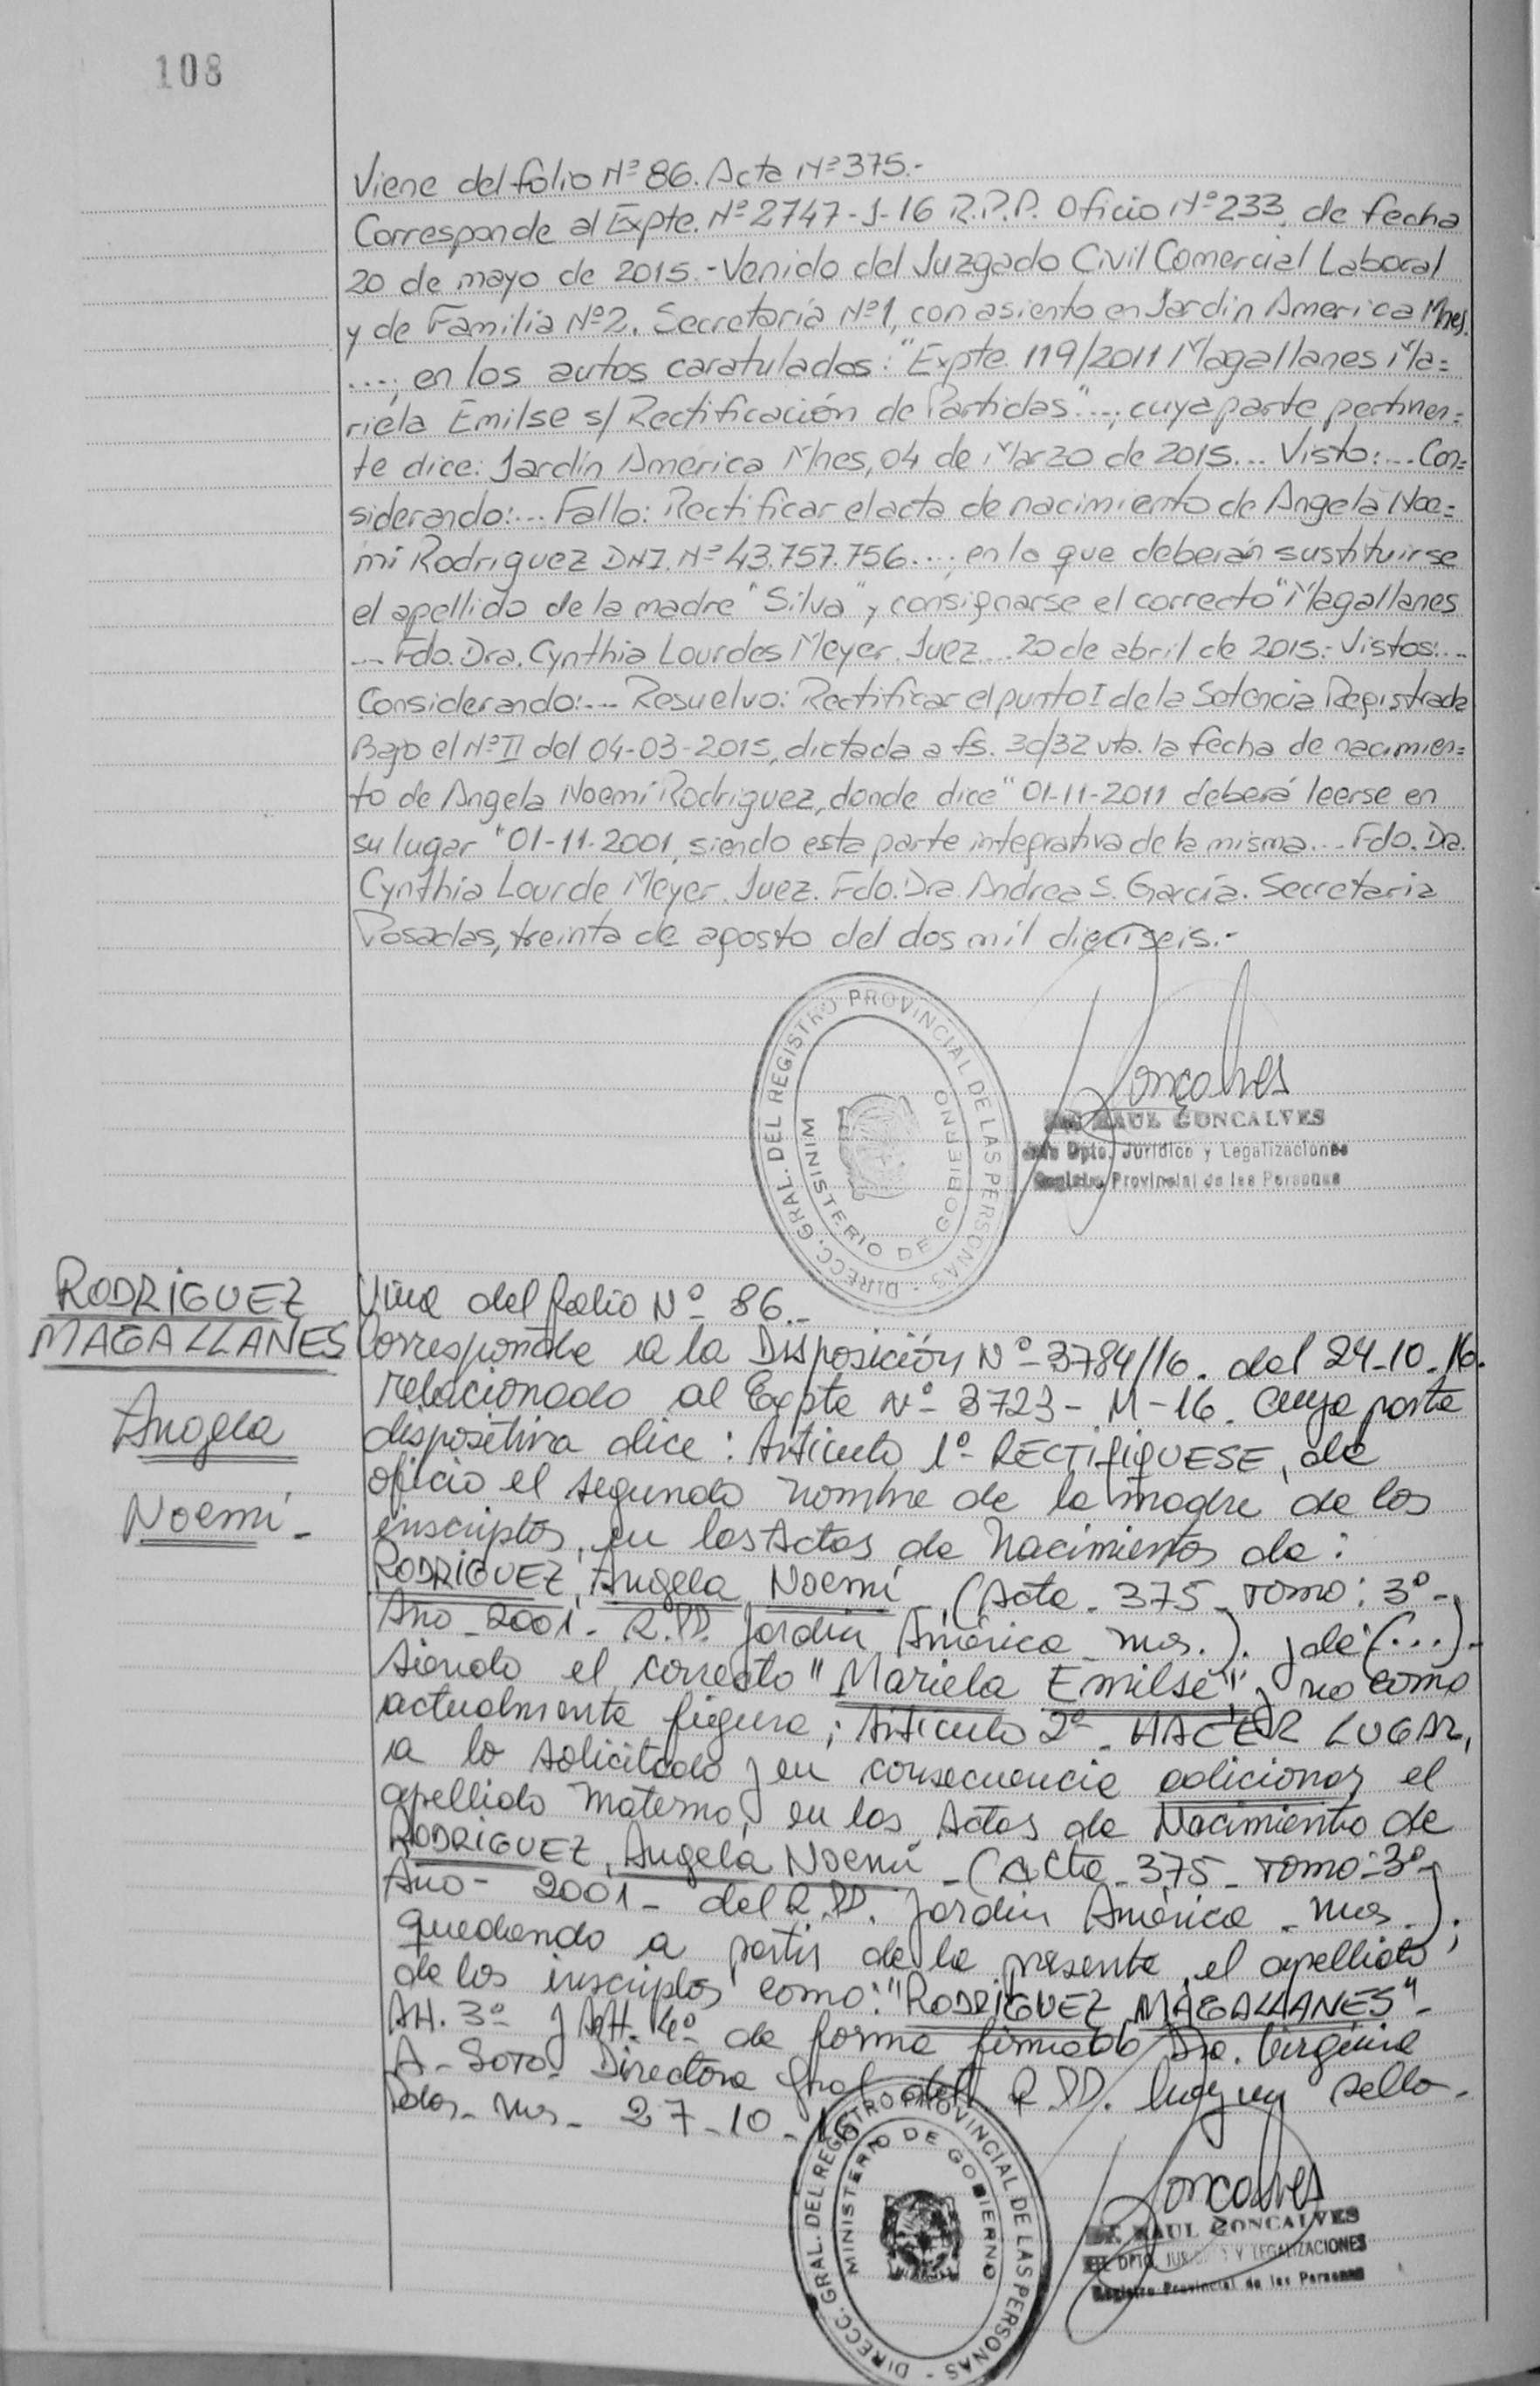 108
Viene del folio Nº 86. Acta Nº 375.-
Corresponde al Expte. Nº 2747-J-16 R.P.P. Oficio Nº 233, de fecha
20 de mayo de 2015.- Venido del Juzgado Civil Comercial Laboral
y de Familia Nº 2. Secretaría Nº 1, con asiento en Jardin America Mnes.
...; en los autos caratulados: "Expte. 119/2011 Magallanes Ma=
riela Emilse s/ Rectificación de Partidas" ...; cuya parte pertinen=
te dice: Jardín América Mnes, 04 de Marzo de 2015... Visto:... Con=
siderando:... Fallo: Rectificar el acta de nacimiento de Angela Noe=
mí Rodriguez DNI. Nº 43.757.756...; en la que deberán sustituirse
el apellido de la madre "Silva" y consignarse el correcto "Magallanes
... Fdo. Dra. Cynthia Lourdes Meyer. Juez... 20 de abril de 2015.- Vistos:...
Considerando:... Resuelvo: Rectificar el punto I de la Setencia Registrada
Bajo el Nº II del 04-03-2015, dictada a fs. 30/32 vta. la fecha de nacimien=
to de Angela Noemí Rodriguez, donde dice "01-11-2011 deberá leerse en
su lugar "01-11-2001, siendo esta parte integrativa de la misma... Fdo. Dra.
Cynthia Lourde Meyer. Juez. Fdo. Dra. Andrea S. García. Secretaria
Posadas, treinta de agosto del dos mil dieciseis.-
DIRECC. GRAL. DEL REGISTRO PROVINCIAL DE LAS PERSONAS
MINISTERIO DE GOBIERNO
Goncalves
RAUL GONCALVES
Jefe Dpto. Jurídico y Legalizaciones
Registro Provincial de las Personas
RODRIGUEZ
MAGALLANES
Angela
Noemí-
Viene del folio Nº 86.-
Corresponde a la Disposición Nº 3784/16. del 24-10-16.
relacionado al Expte Nº 3723-M-16. cuya parte
dispositiva dice: Artículo 1º- RECTIFIQUESE, de
oficio el segundo nombre de la madre de los
inscriptos, en las Actas de Nacimientos de:
RODRIGUEZ, Angela Noemí - (Acta - 375 - Tomo: 3º -
Año - 2001 - R.PP. Jardín América - Mnes.). y de (...).-
siendo el correcto "Mariela Emilse" y no como
actualmente figura; Artículo 2º- HACER LUGAR,
a lo solicitado y en consecuencia adicionar el
apellido Materno, en las Actas de Nacimiento de
RODRIGUEZ, Angela Noemí - (Acta - 375 - Tomo: 3º-
Año - 2001 - del R.PP. Jardín América - Mnes.).
quedando a partir de la presente, el apellido
de los inscriptos como: "RODRIGUEZ MAGALLANES"-
Art. 3º y Art. 4º de forma firmado Dra. Virginia
A - SOTO - Directora Gral del R.PP. hay un sello.
Pdas. Mnes - 27-10-16
DIRECC. GRAL. DEL REGISTRO PROVINCIAL DE LAS PERSONAS
MINISTERIO DE GOBIERNO
Goncalves
RAUL GONCALVES
DPTO. JURIDICO Y LEGALIZACIONES
Registro Provincial de las Personas